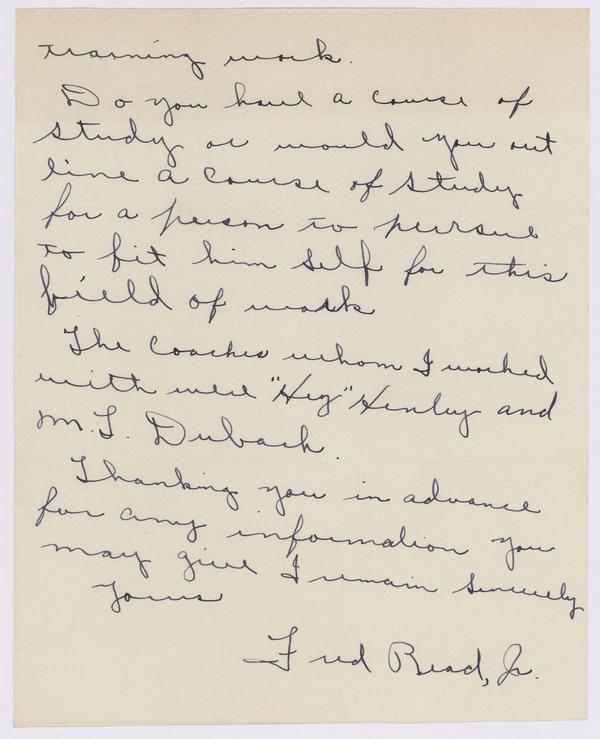 training work.
Do you have a course of
study or would you out
line a course of study
for a person to pursue
to fit him self for this
field of work
The coaches whom I worked
with were "Hey" Henley and
M. L. Dubach.
Thanking you in advance
for any information you
may give I remain sincerely
yours
Fred Read, Jr.